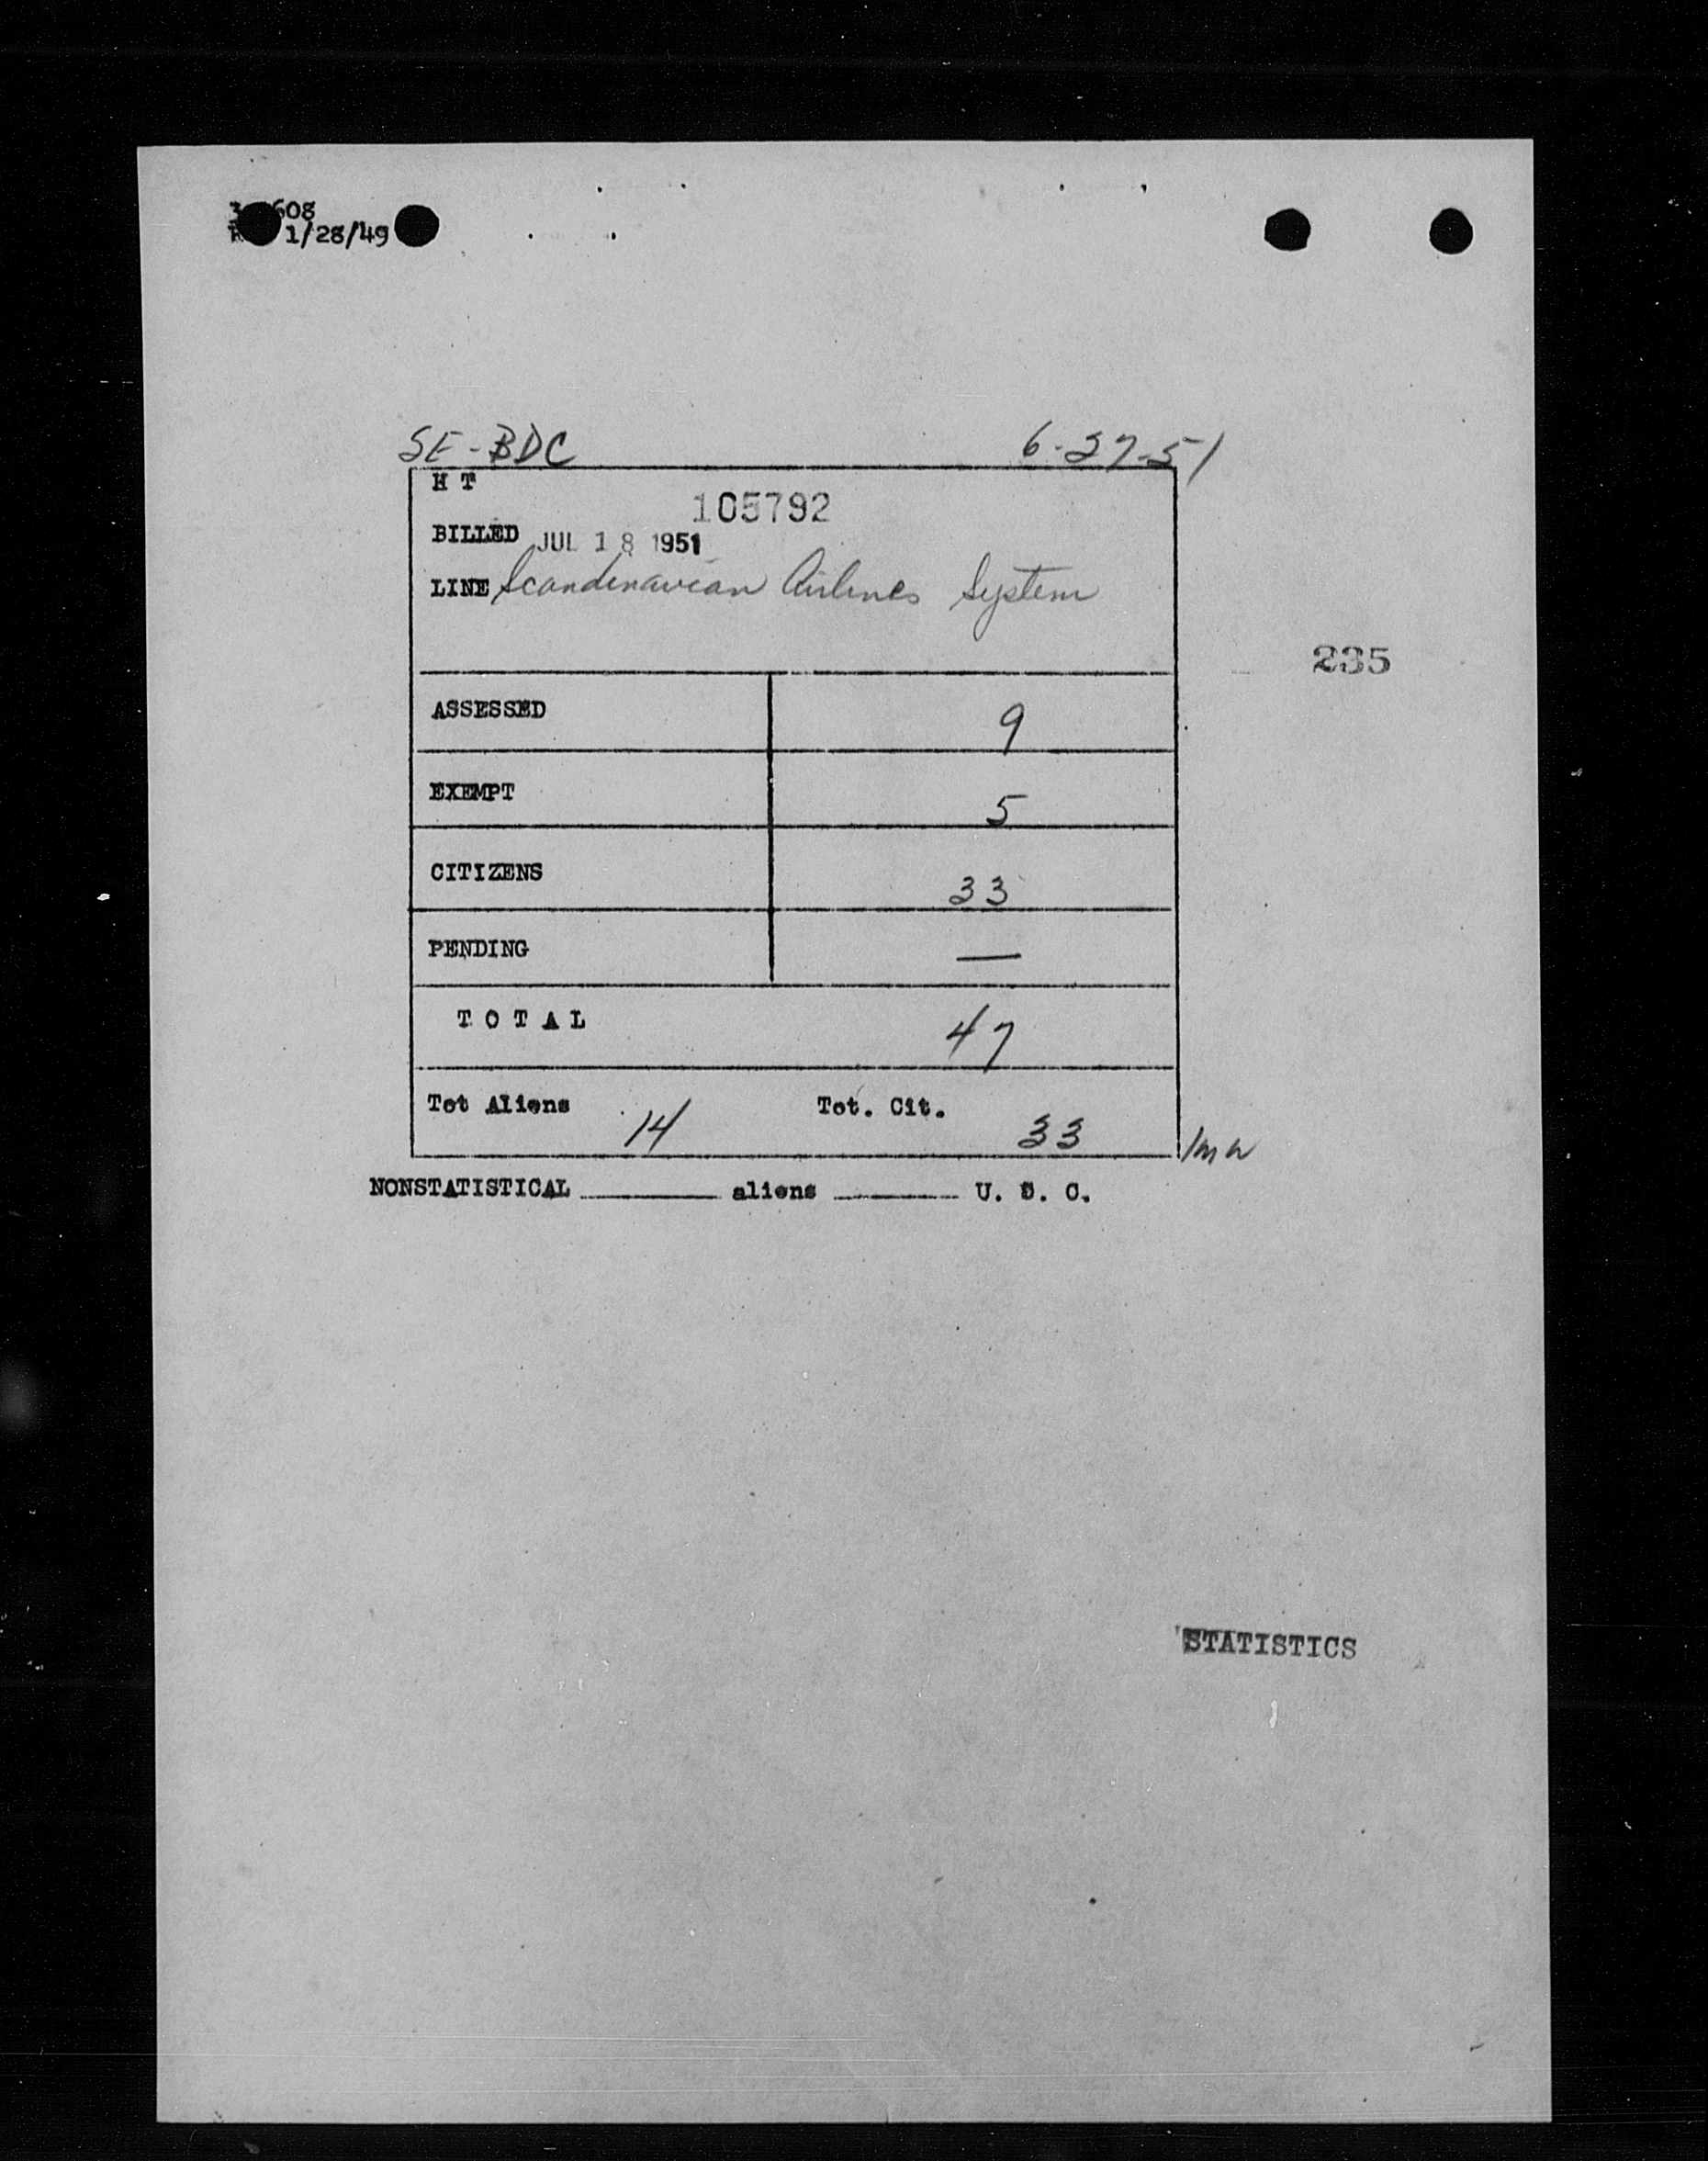 608
1/28/49
SE-BDC 6-27-51
H T
105792
BILLED JUL 18 1951
LINE Scandinavian Airlines System
235
ASSESSED 9
EXEMPT 5
CITIZENS 33
PENDING —
T O T A L 47
Tot Aliens 14 Tot. Cit. 33
NONSTATISTICAL ________ aliens ________ U. S. C.
STATISTICS